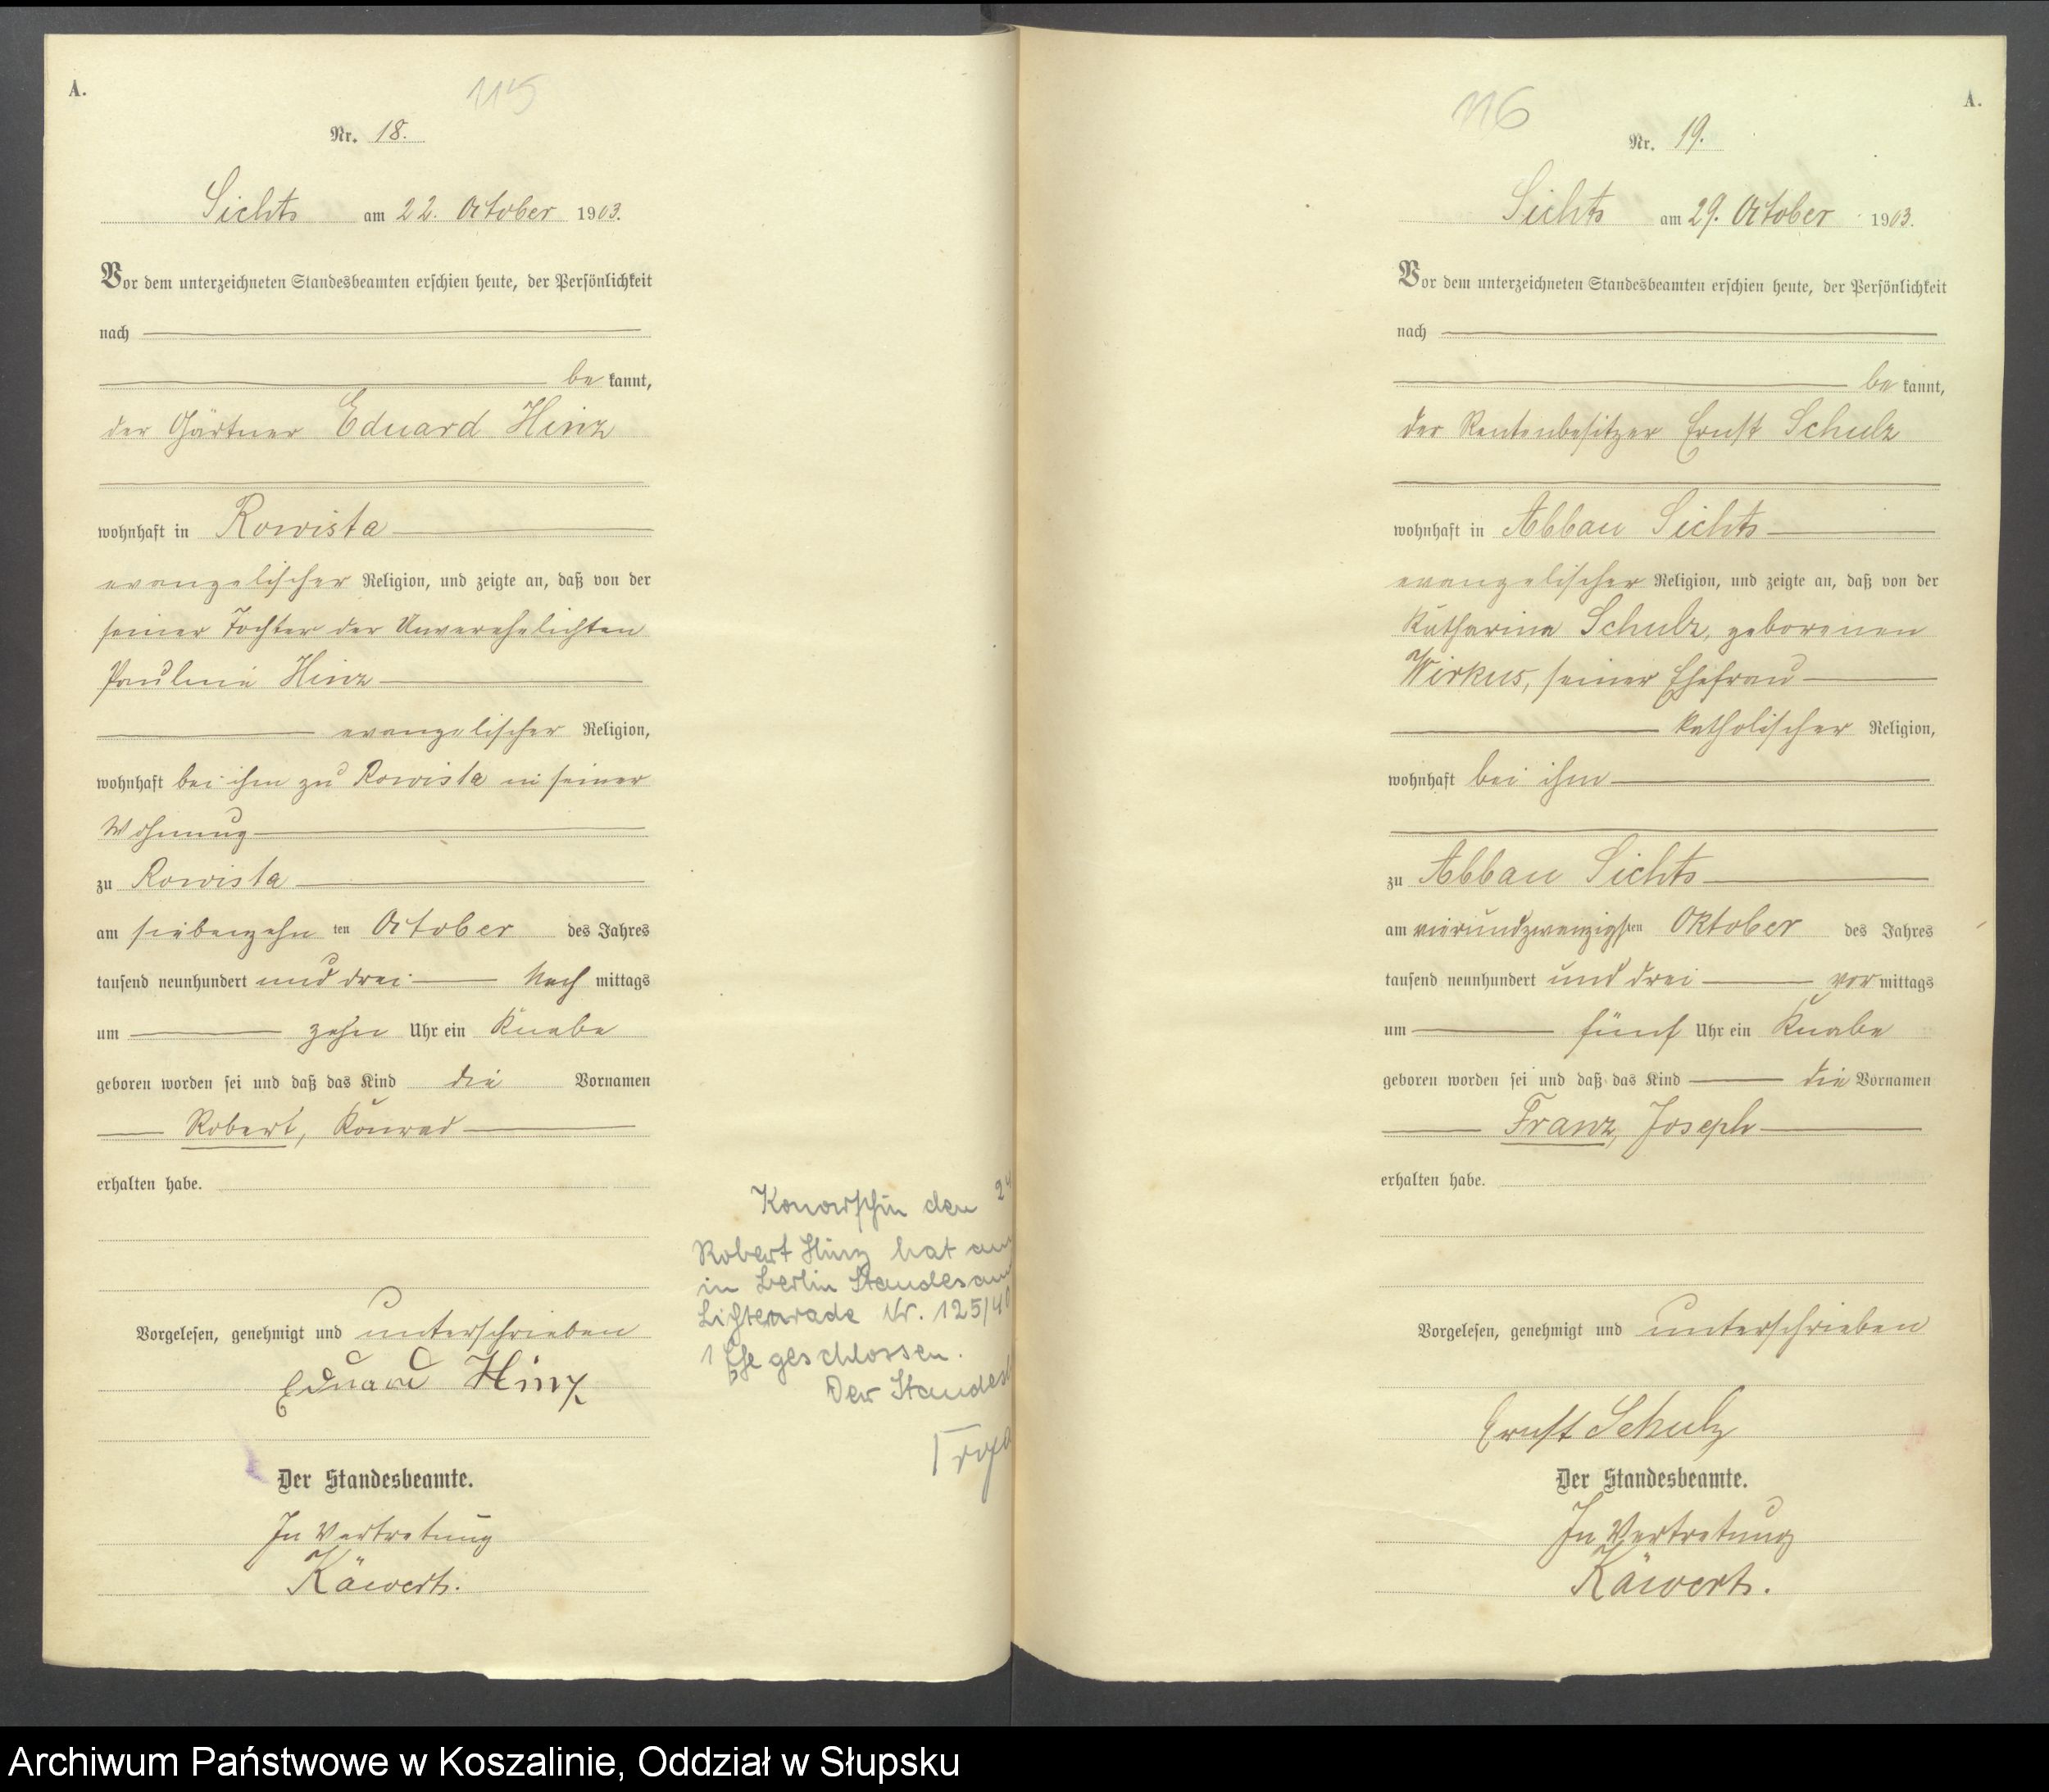 A.
115
Nr. 18.
Sichts am 22. October 1903.
Vor dem unterzeichneten Standesbeamten erschien heute, der Persönlichkeit
nach
be kannt,
der Gärtner Eduard Hinz
wohnhaft in Rowista
evangelischer Religion, und zeigte an, daß von der
seiner Tochter der Unverehelichten
Pauline Hinz
evangelischer Religion,
wohnhaft bei ihm zu Rowista in seiner
Wohnung
zu Rowista
am siebenzehn ten October des Jahres
tausend neunhundert und drei Nach mittags
um zehn Uhr ein Knabe
geboren worden sei und daß das Kind die Vornamen
Robert, Konrad
erhalten habe.
Vorgelesen, genehmigt und unterschrieben
Eduard Hinz
Der Standesbeamte.
In Vertretung
Käwert.
Konarschin den 24
Robert Hinz hat am
in Berlin Standesam
Lichtenrade Nr. 125/40
1 Ehe geschlossen.
Der Standesb
116
A.
Nr. 19.
Sichts am 29. October 1903.
Vor dem unterzeichneten Standesbeamten erschien heute, der Persönlichkeit
nach
be kannt,
der Rentenbesitzer Ernst Schulz
wohnhaft in Abbau Sichts
evangelischer Religion, und zeigte an, daß von der
Katharina Schulz, geborenen
Wirkus, seiner Ehefrau
katholischer Religion,
wohnhaft bei ihm
zu Abbau Sichts
am vierundzwanzigsten Oktober des Jahres
tausend neunhundert und drei vor mittags
um fünf Uhr ein Knabe
geboren worden sei und daß das Kind die Vornamen
Franz, Joseph
erhalten habe.
Vorgelesen, genehmigt und unterschrieben
Ernst Schulz
Der Standesbeamte.
In Vertretung
Käwert.
Archiwum Państwowe w Koszalinie, Oddział w Słupsku